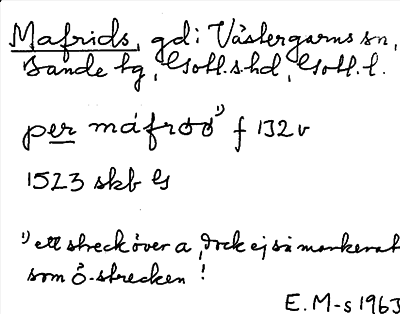 Mafrids, gd i Västergarns sn,
Sande tg, Gotl.s hd, Gotl. l.
per máfróó ¹) f 132 v
1523 skb G
¹) ett streck över a, dock ej så markerat
som ó-strecken!
E. M-s 1963